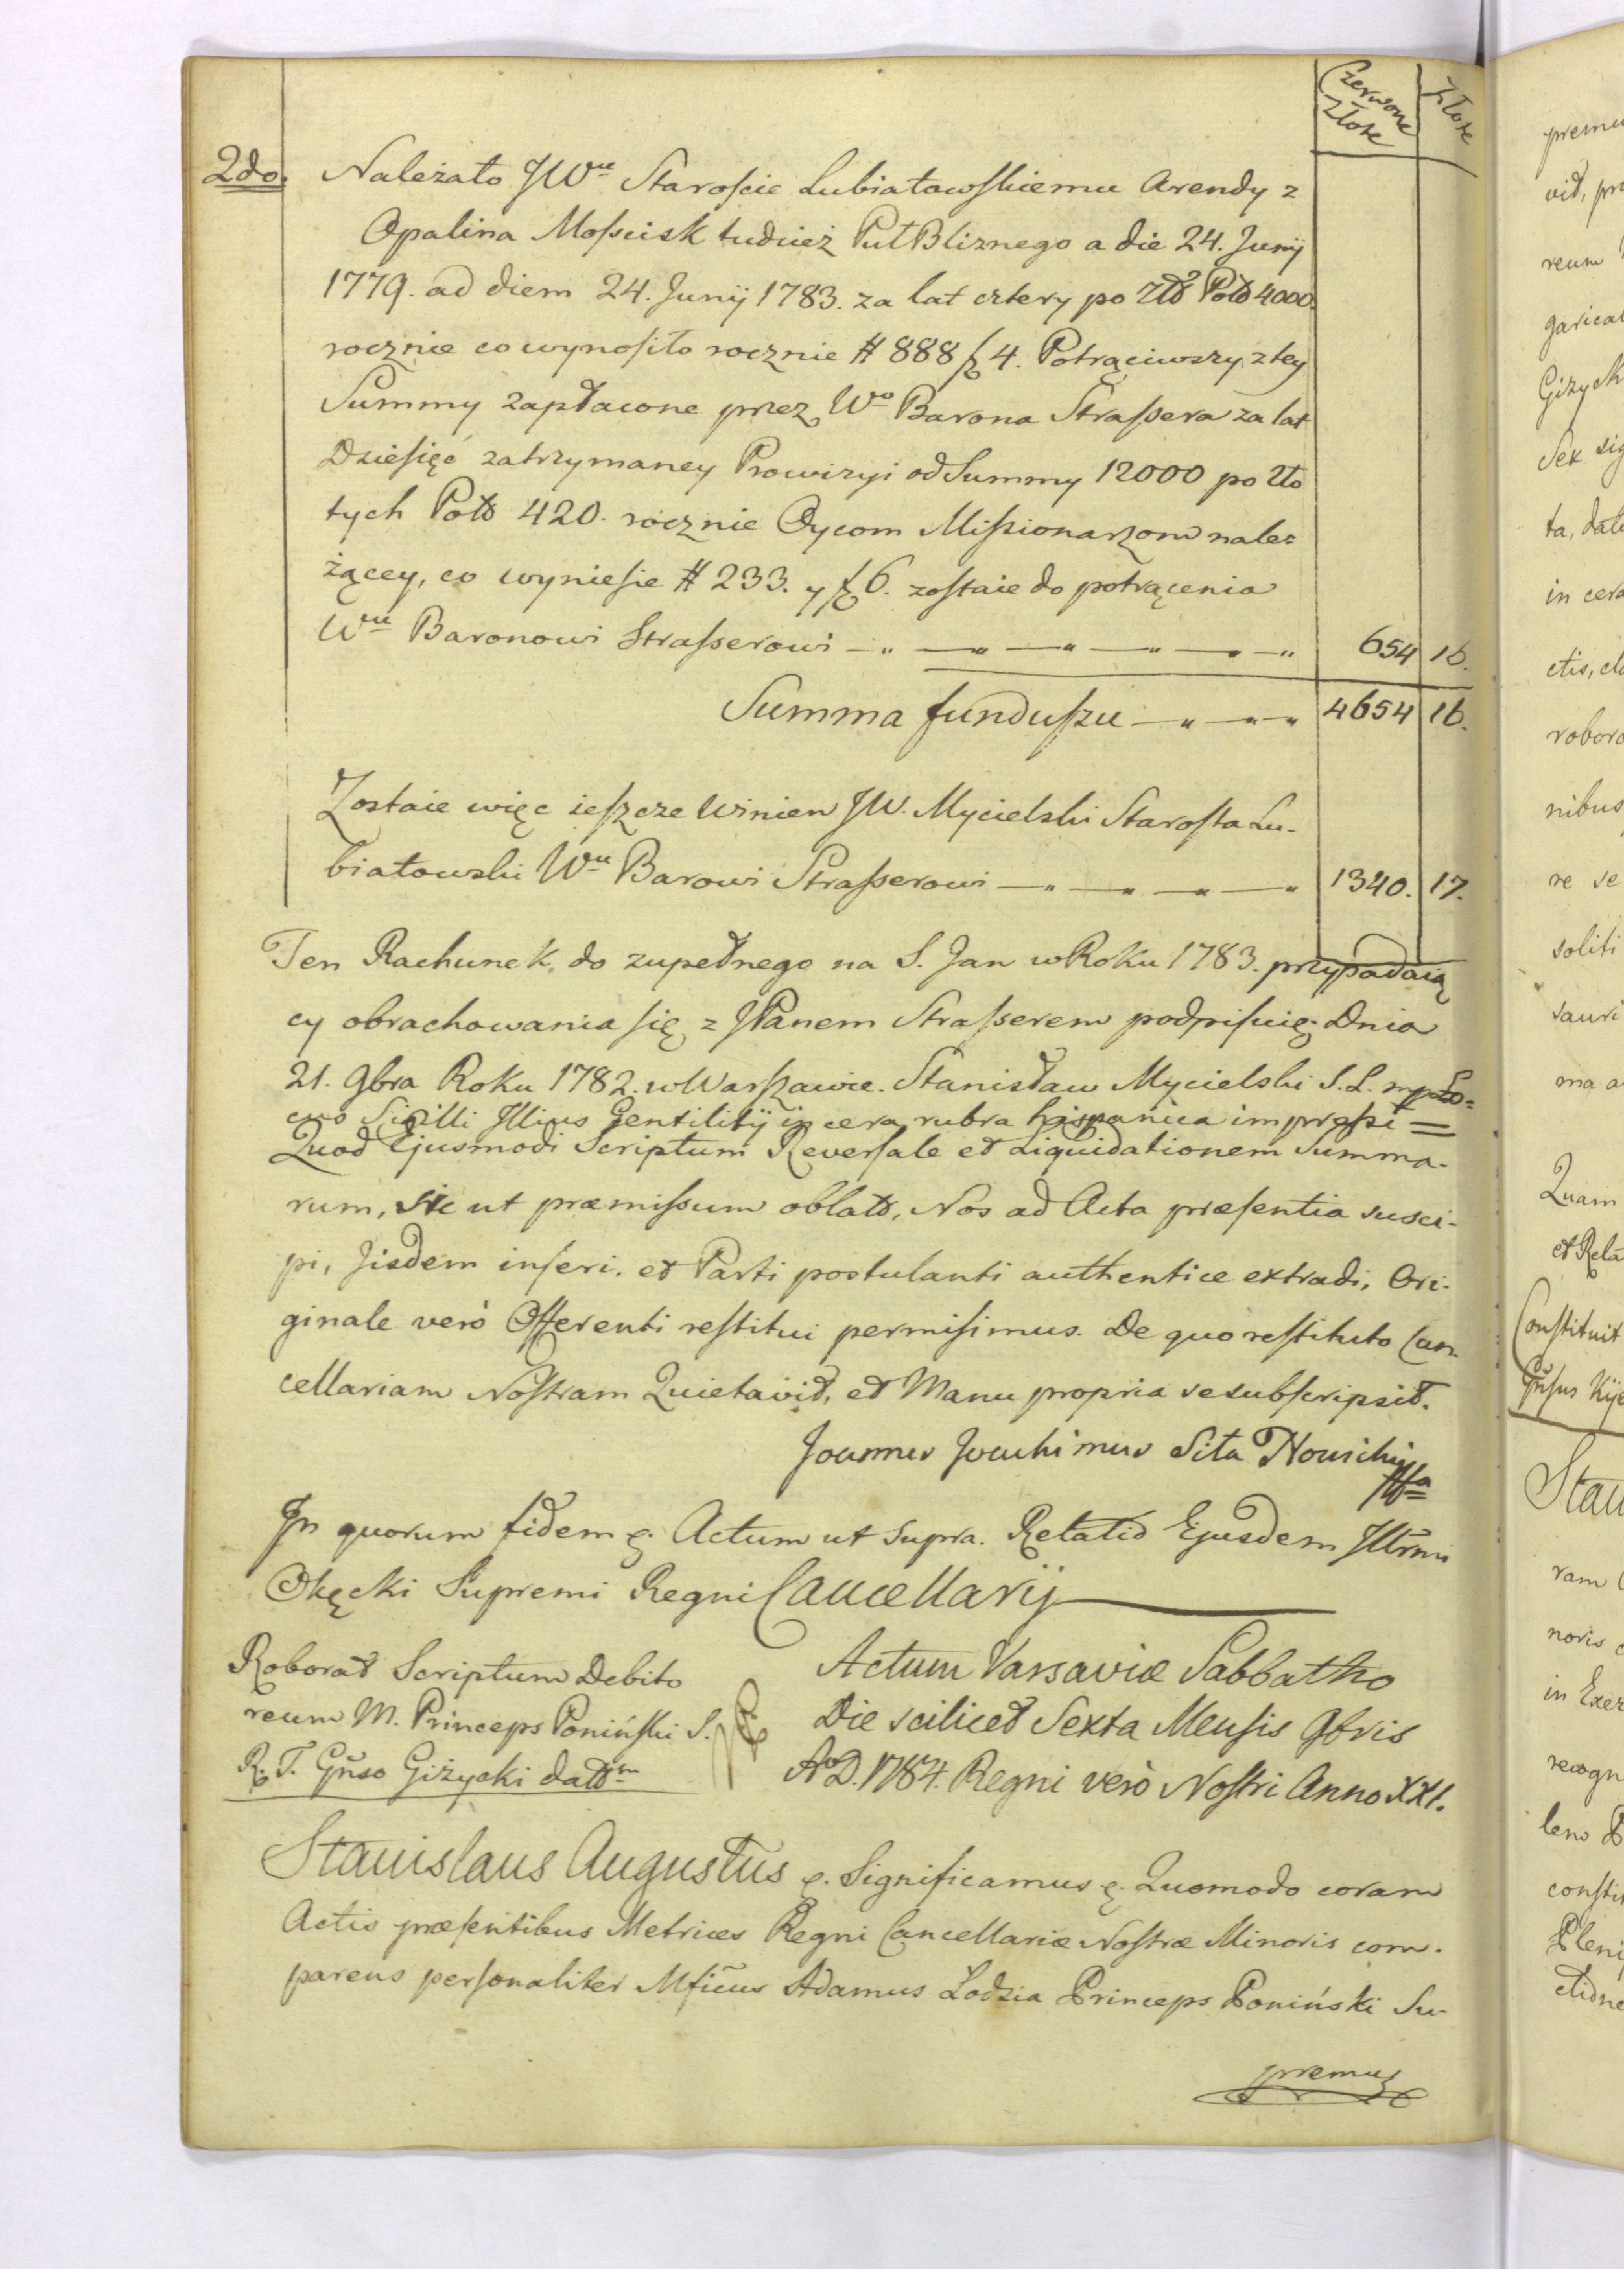 Czerwone Złote | Złote
2do. Należało JWu Staroście Lubiatowskiemu Arendy z
Opalina Mościsk tudzież Puł Bliznego a die 24. Junij
1779. ad diem 24. Junij 1783. za lat cztery po Zło Pols 4000.
rocznie co wynosiło rocznie # 888 f 4. Potrąciwszy z tey
Summy zapłacone przez Wo Barona Straſsera za lat
Dzieſięć zatrzymaney Prowizyi od Summy 12000 po Zło
tych Pols 420. rocznie Oycom Miſsionarzom nale=
żącey, co wynieſie # 233. y f 6. zoſtaie do potrącenia
Wu Baronowi Straſserowi 654 | 16.
Summa funduſzu 4654 | 16.
Zostaie więc ieſzcze Winien JW. Mycielski Staroſta Lu-
biatowski Wu Barowi Straſserowi 1340. | 17.
Ten Rachunek, do zupełnego na S. Jan w Roku 1783. przypadaią
cy obrachowania ſię z JPanem Straſserem podpiſuię. Dnia
21. 9bra Roku 1782. w Warſzawie. Stanisław Mycielski S. L. mp Lo=
cus Sigilli Illius Gentilitij in cera rubra hispanica impreſsi =
Quod Ejusmodi Scriptum Reverſale et Liquidationem Summa-
rum, sic ut præmiſsum oblat, Nos ad Acta præſentia susci-
pi, Jisdem inſeri, et Parti postulanti authentice extradi, Ori-
ginale verò Offerenti reſtitui permiſimus. De quo reſtituto Can
cellariam Noſtram Quietavit, et Manu propria se subſcripsit.
Joannes Joachimus Sita Nowicki
In quorum fidem &. Actum ut supra. Relatio Ejusdem Illrmi
Okęcki Supremi Regni Cancellarij
Roborat Scriptum Debito
reum M. Princeps Poniński S.
R. T. Gnso Giżycki datm
Actum Varsaviæ Sabbatho
Die scilicet Sexta Menſis 9bris
AoD. 1784. Regni verò Noſtri Anno XXI.
Stanislaus Augustus &. Significamus &. Quomodo coram
Actis præſentibus Metrices Regni Cancellariæ Noſtræ Minoris com-
parens perſonaliter Mficus Adamus Lodzia Princeps Poniński Su-
premus